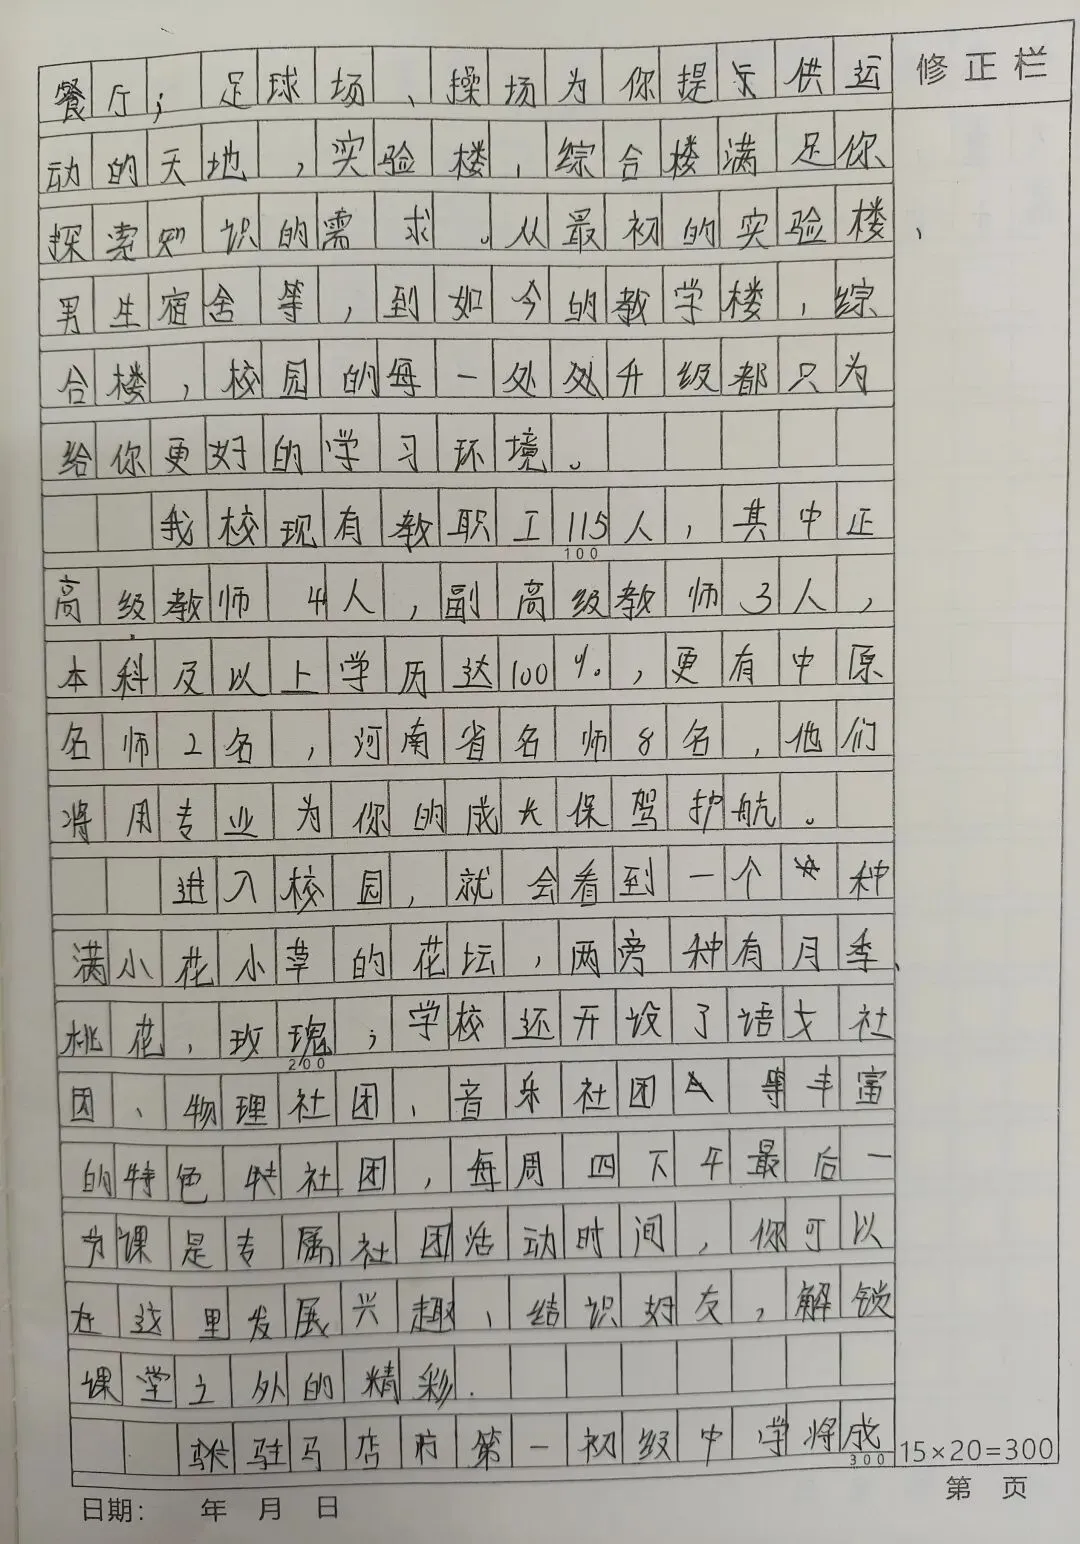 餐厅；足球场、操场为你提供运
修正栏
动的天地，实验楼，综合楼满足你
探索知识的需求。从最初的实验楼、
男生宿舍等，到如今的教学楼，综
合楼，校园的每一处处升级都只为
给你更好的学习环境。
我校现有教职工115人，其中正
100
高级教师4人，副高级教师3人，
本科及以上学历达100%，更有中原
名师2名，河南省名师8名，他们
将用专业为你的成长保驾护航。
进入校园，就会看到一个种
满小花小草的花坛，两旁种有月季、
桃花，玫瑰；学校还开设了语文社
200
团、物理社团、音乐社团等丰富
的特色社团，每周四下午最后一
节课是专属社团活动时间，你可以
在这里发展兴趣、结识好友，解锁
课堂之外的精彩.
驻马店市第一初级中学将成
300
15×20=300
日期： 年 月 日
第 页